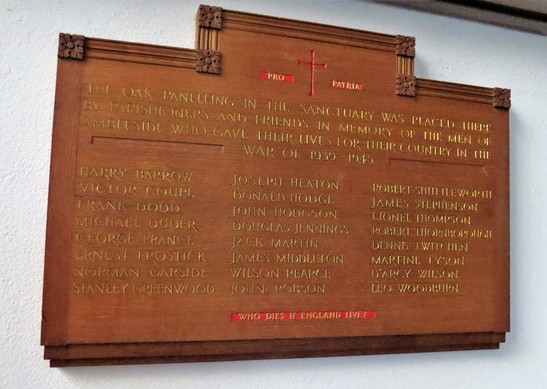 PRO PATRIA
THE OAK PANELLING IN THE SANCTUARY WAS PLACED HERE
BY PARISHIONERS AND FRIENDS IN MEMORY OF THE MEN OF
AMBLESIDE WHO GAVE THEIR LIVES FOR THEIR COUNTRY IN THE
WAR OF 1939-1945
HARRY BARROW
VICTOR COUPE
FRANK DODD
MICHAEL DUDER
GEORGE FRANCE
ERNEST FROSTICK
NORMAN GARSIDE
STANLEY GREENWOOD
JOSEPH HEATON
DONALD HODGE
JOHN HODGSON
DOUGLAS JENNINGS
JACK MARTIN
JAMES MIDDLETON
WILSON PEARCE
JOHN ROBSON
ROBERT SHUTTLEWORTH
JAMES STEPHENSON
LIONEL THOMPSON
ROBERT THORNBOROUGH
DENNIS TWITCHEN
MARTIN TYSON
D'ARCY WILSON
LEO WOODBURN
WHO DIES IF ENGLAND LIVE?